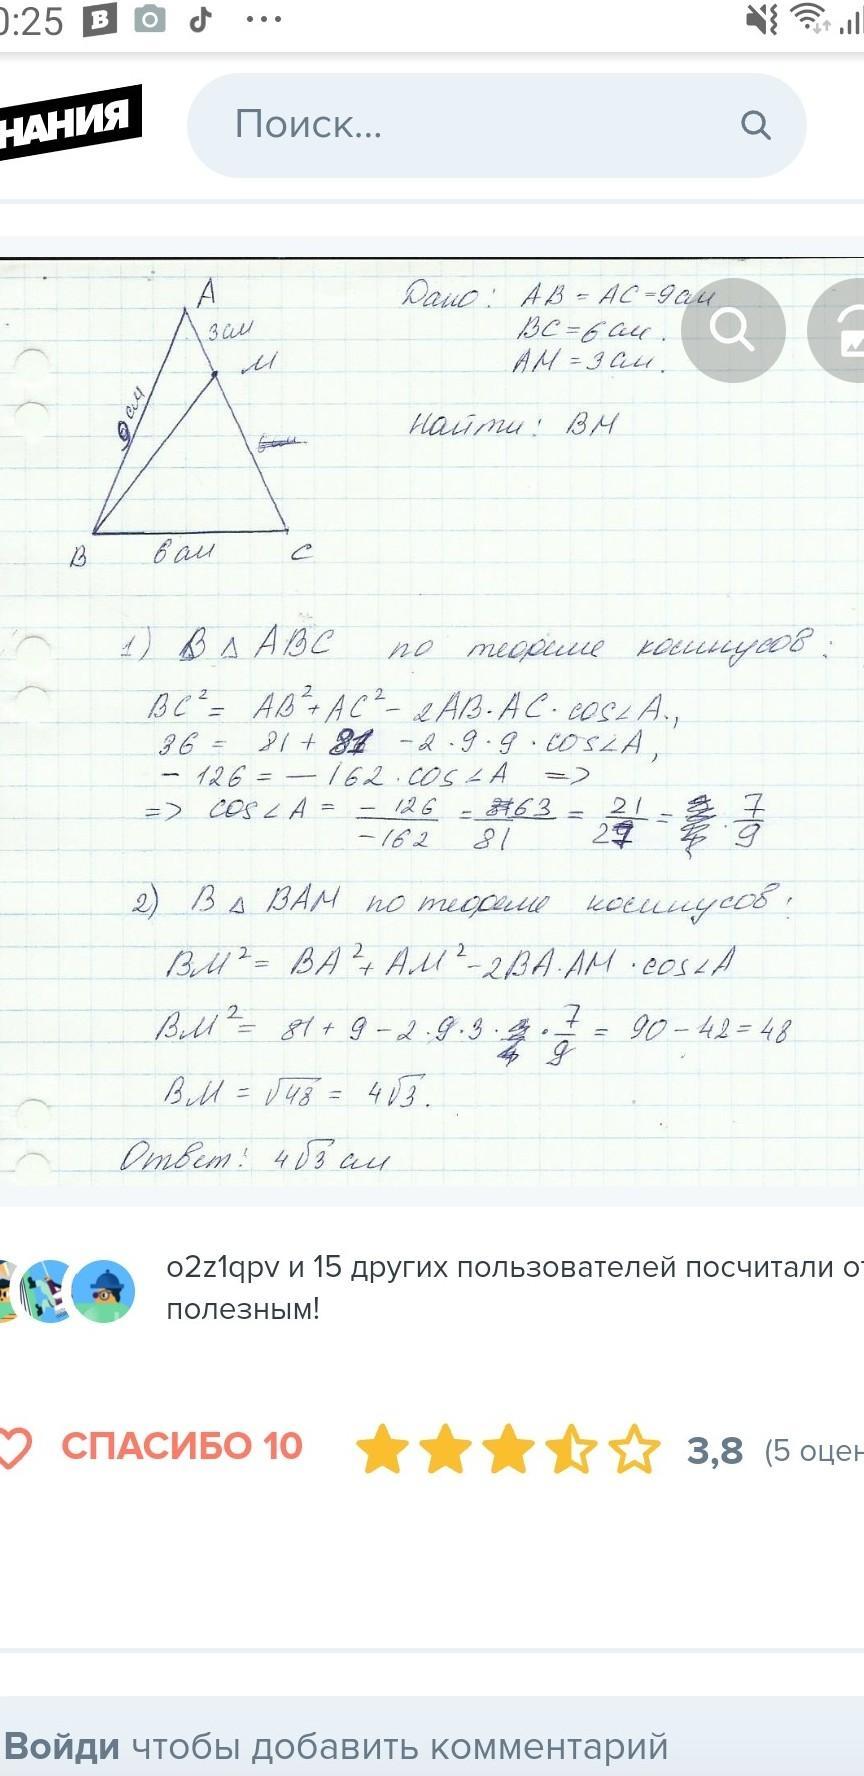 0:25
НАНИЯ
Поиск...
A
3 см
M
9 см
B
6 см
C
Дано: AB = AC = 9 см
BC = 6 см.
AM = 3 см.
Найти: BM
1) В △ ABC по теореме косинусов:
BC² = AB² + AC² - 2AB·AC·cos∠A.,
36 = 81 + 81 - 2·9·9·cos∠A,
- 126 = - 162·cos∠A =>
=> cos∠A = -126/-162 = 63/81 = 21/27 = 7/9
2) В △ BAM по теореме косинусов:
BM² = BA² + AM² - 2BA·AM·cos∠A
BM² = 81 + 9 - 2·9·3·7/9 = 90 - 42 = 48
BM = √48 = 4√3.
Ответ: 4√3 см
o2z1qpv и 15 других пользователей посчитали от
полезным!
СПАСИБО 10
3,8 (5 оцен
Войди чтобы добавить комментарий